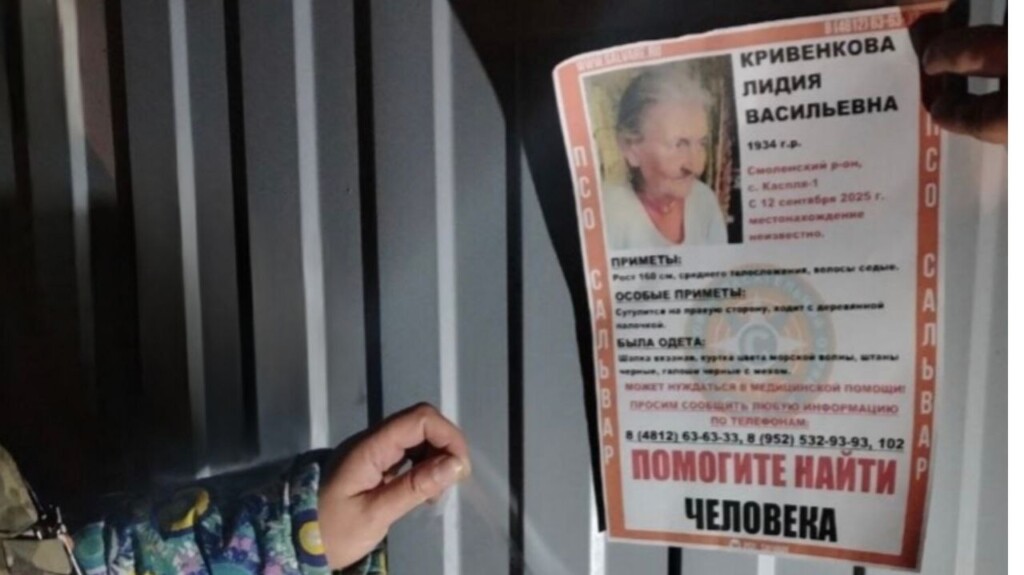 WWW.SALVARE.RU
8 (4812) 63-63
КРИВЕНКОВА
ЛИДИЯ
ВАСИЛЬЕВНА
1934 г.р.
Смоленский р-он,
с. Каспля-1
С 12 сентября 2025 г.
местонахождение
неизвестно.
ПСО САЛЬВАР
ПСО САЛЬВАР
ПРИМЕТЫ:
Рост 160 см, среднего телосложения, волосы седые.
ОСОБЫЕ ПРИМЕТЫ:
Сутулится на правую сторону, ходит с деревянной
палочкой.
БЫЛА ОДЕТА:
Шапка вязаная, куртка цвета морской волны, штаны
черные, галоши черные с мехом.
МОЖЕТ НУЖДАТЬСЯ В МЕДИЦИНСКОЙ ПОМОЩИ!
ПРОСИМ СООБЩИТЬ ЛЮБУЮ ИНФОРМАЦИЮ
ПО ТЕЛЕФОНАМ:
8 (4812) 63-63-33, 8 (952) 532-93-93, 102
ПОМОГИТЕ НАЙТИ
ЧЕЛОВЕКА